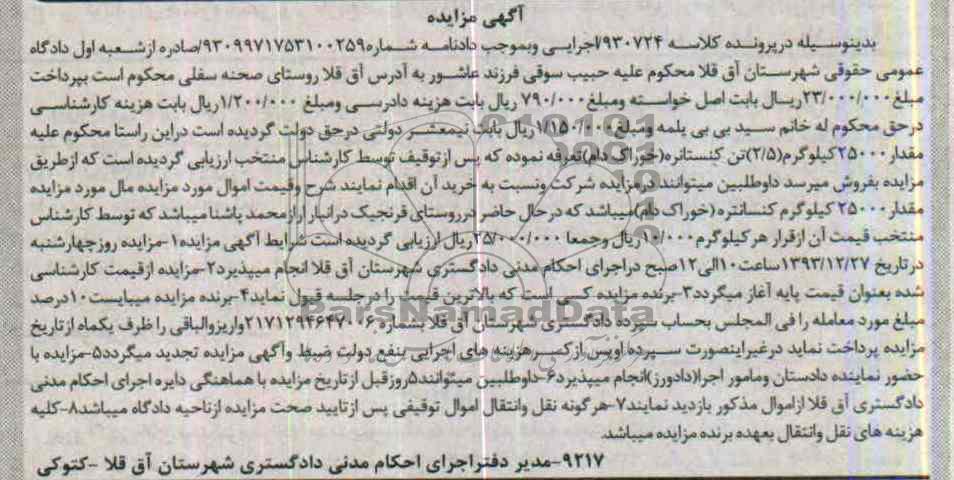 آگهی مزایده
بدینوسیله درپرونده کلاسه ۹۳۰۷۲۴/اجرایی وبموجب دادنامه شماره۹۳۰۹۹۷۱۷۵۳۱۰۰۲۵۹/صادره ازشعبه اول دادگاه
عمومی حقوقی شهرستان آق قلا محکوم علیه حبیب سوقی فرزند عاشور به آدرس آق قلا روستای صحنه سفلی محکوم است بپرداخت
مبلغ۲۳/۰۰۰/۰۰۰ریال بابت اصل خواسته ومبلغ۷۹۰/۰۰۰ ریال بابت هزینه دادرسی ومبلغ ۱/۲۰۰/۰۰۰ریال بابت هزینه کارشناسی
درحق محکوم له خانم سید بی بی یلمه ومبلغ۱/۱۵۰/۰۰۰ریال بابت نیمعشر دولتی درحق دولت گردیده است دراین راستا محکوم علیه
مقدار۲۵۰۰۰کیلوگرم(۲/۵)تن کنستانره(خوراک دام)تعرفه نموده که پس ازتوقیف توسط کارشناس منتخب ارزیابی گردیده است که ازطریق
مزایده بفروش میرسد داوطلبین میتوانند درمزایده شرکت ونسبت به خرید آن اقدام نمایند شرح وقیمت اموال مورد مزایده مال مورد مزایده
مقدار۲۵۰۰۰ کیلوگرم کنسانتره (خوراک دام)میباشد که درحال حاضر درروستای قرنجیک درانبار ارازمحمد پاشنا میباشد که توسط کارشناس
منتخب قیمت آن ازقرار هرکیلوگرم۱۰/۰۰۰ریال وجمعا ۲۵/۰۰۰/۰۰۰ریال ارزیابی گردیده است شرایط آگهی مزایده۱-مزایده روزچهارشنبه
درتاریخ ۱۳۹۳/۱۲/۲۷ساعت۱۰الی۱۲صبح دراجرای احکام مدنی دادگستری شهرستان آق قلا انجام میپذیرد۲-مزایده ازقیمت کارشناسی
شده بعنوان قیمت پایه آغاز میگردد۳-برنده مزایده کسی است که بالاترین قیمت را درجلسه قبول نماید۴-برنده مزایده میبایست۱۰درصد
مبلغ مورد معامله را فی المجلس بحساب سپرده دادگستری شهرستان آق قلا بشماره ۲۱۷۱۲۹۴۶۴۷۰۰۶واریزوالباقی را ظرف یکماه ازتاریخ
مزایده پرداخت نماید درغیراینصورت سپرده اوپس ازکسر هزینه های اجرایی بنفع دولت ضبط وآگهی مزایده تجدید میگردد۵-مزایده با
حضور نماینده دادستان ومامور اجرا(دادورز)انجام میپذیرد۶-داوطلبین میتوانند۵روزقبل ازتاریخ مزایده با هماهنگی دایره اجرای احکام مدنی
دادگستری آق قلا ازاموال مذکور بازدید نمایند۷-هرگونه نقل وانتقال اموال توقیفی پس ازتایید صحت مزایده ازناحیه دادگاه میباشد۸-کلیه
هزینه های نقل وانتقال بعهده برنده مزایده میباشد.
۹۲۱۷-مدیر دفتراجرای احکام مدنی دادگستری شهرستان آق قلا -کتوکی
ParsNamadData